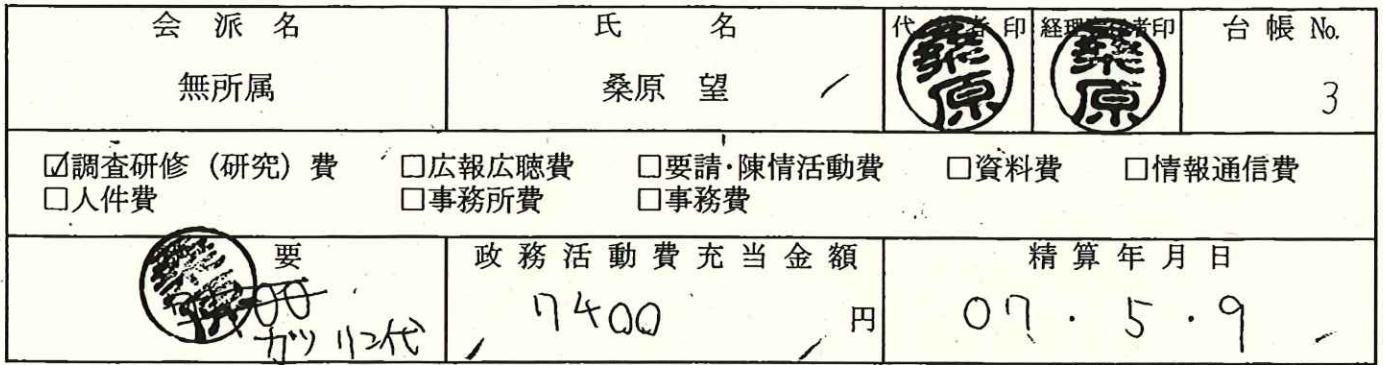 会派名 氏名 代 者印 経理 者印 台帳 No.
無所属 桑原 望 桑原 桑原 3
☑調査研修（研究）費 □広報広聴費 □要請・陳情活動費 □資料費 □情報通信費
□人件費 □事務所費 □事務費
要 政務活動費充当金額 精算年月日
7400 円 07・5・9
ガソリン代